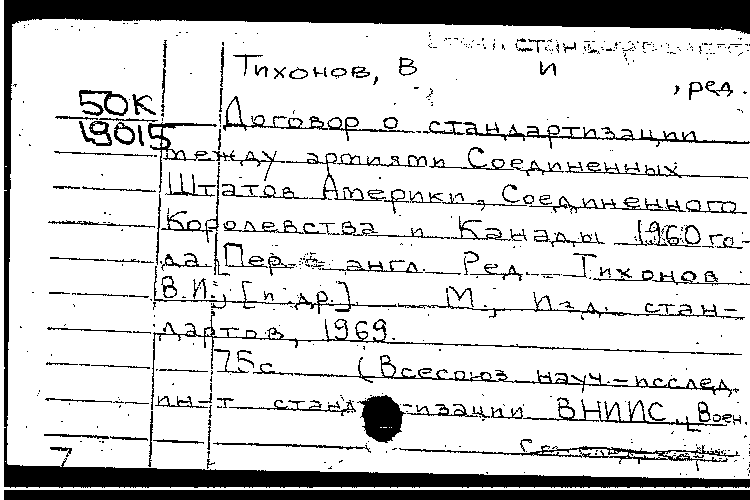 Тихонов, В И
, ред.
50К
19015
Договор о стандартизации
между армиями Соединенных
Штатов Америки, Соединенного
Королевства и Канады 1960 го-
да Пер с англ. Ред. Тихонов
В.И., [и др.] М., Изд. стан-
дартов, 1969.
75с (Всесоюз науч-исслед.
ин-т стандтизации ВНИИС, Воен.
7